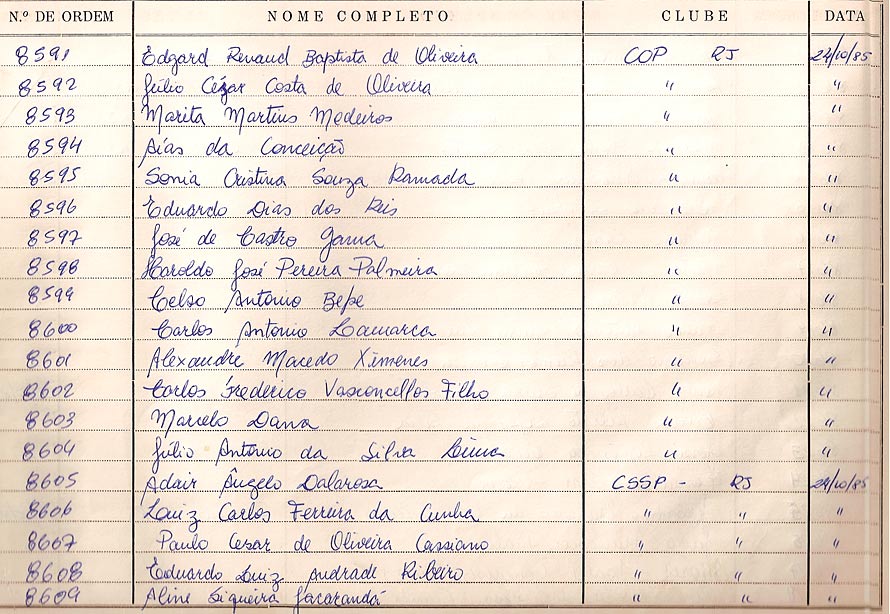 N.º DE ORDEM NOME COMPLETO CLUBE DATA
8591 Edgard Renaud Baptista de Oliveira COP RJ 24/10/85
8592 Júlio Cézar Costa de Oliveira " "
8593 Marita Martins Medeiros " "
8594 da Conceição " "
8595 Sonia Cristina Souza Ramada " "
8596 Eduardo Dias dos Reis " "
8597 José de Castro Gama " "
8598 Haroldo José Pereira Palmeira " "
8599 Celso Antonio Bepe " "
8600 Carlos Antonio Lamarca " "
8601 Alexandre Macedo Ximenes " "
8602 Carlos Frederico Vasconcellos Filho " "
8603 Marcelo Dana " "
8604 Júlio Antonio da Silva Lima " "
8605 Adair Ângelo Dalarosa CSSP - RJ 24/10/85
8606 Luiz Carlos Ferreira da Cunha " " "
8607 Paulo Cesar de Oliveira Cassiano " " "
8608 Eduardo Luiz Andrade Ribeiro " " "
8609 Aline Siqueira Jacarandá " " "